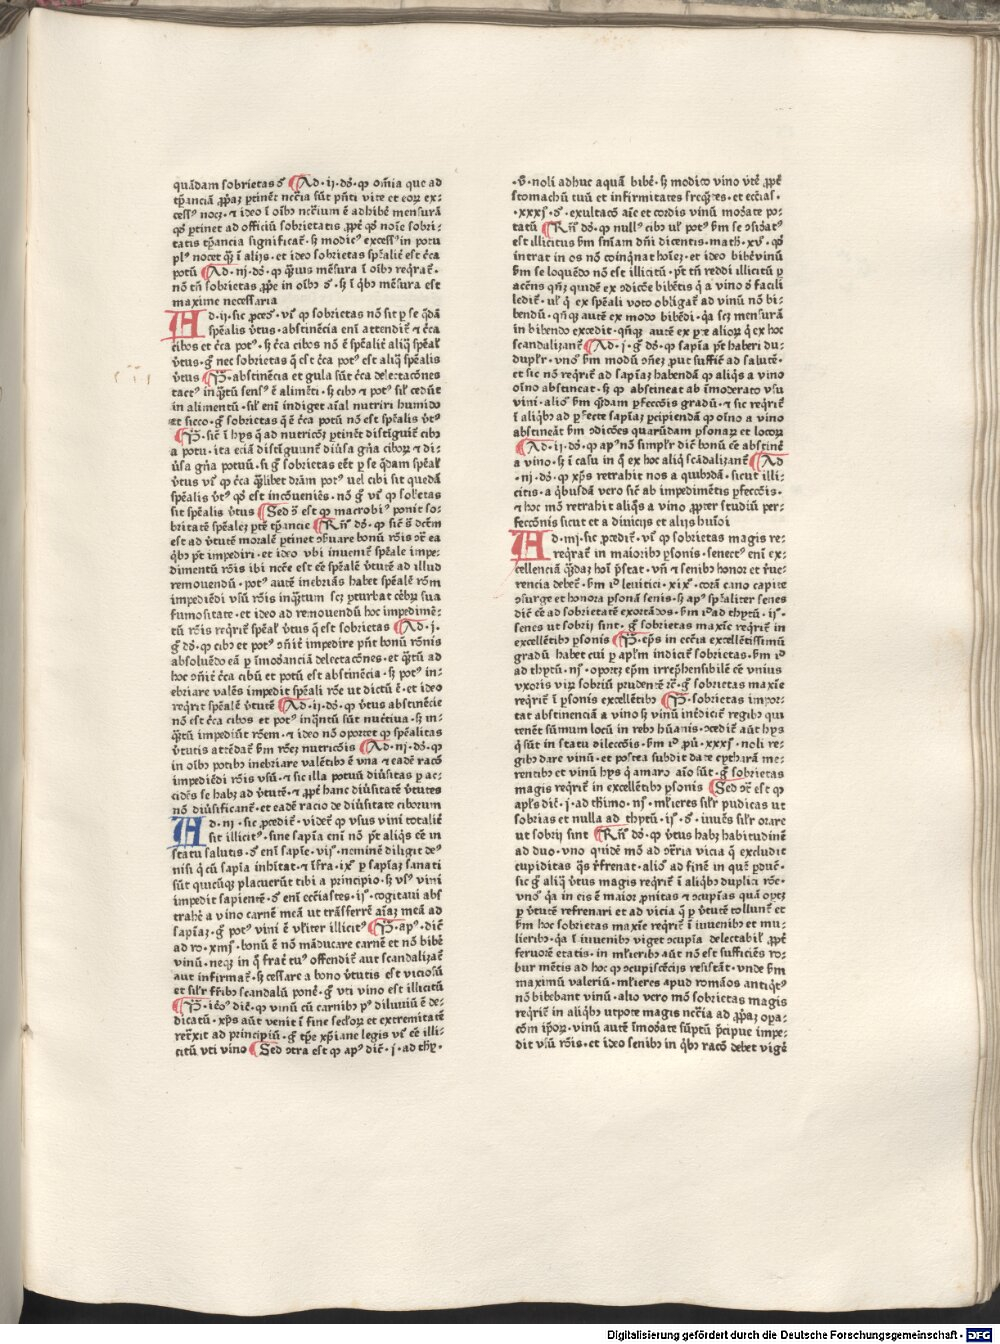 quãdam sobrietas ẽ Ad·ij·dõ·ꝙ om̃ia que ad
tꝑancia ꝓpaꝫ ptinẽt nccĩa sũt pñti vite et eoꝝ ex-
cess⁹ nocꝫ·⁊ ideo ĩ oĩbꝫ nccĩum ẽ adhibẽ mensurã
qđ ptinet ad officiũ sobrietatis ꝓpẽ qđ noĩe sobri-
tatis tꝑancia significat̃·sꝫ modic⁹ excess⁹ in potu
pl⁹ nocet qꝫ̃ ĩ alijs·et ideo sobrietas spẽalit̃ est c̃ca
potũ Ad·iij·dõ·ꝙ quãuis mẽsura ĩ oĩbꝫ reqrat̃·
nõ tñ sobrietas ꝓpe in oĩbꝫ đ·sꝫ ĩ qbꝫ mẽsura est
maxime necessaria
Ad·ij·sic ꝓceđ·vĩ ꝙ sobrietas nõ sit ꝑ se q̃dã
spẽalis v̾tus·abstinẽcia enĩ attendit̃ ⁊ c̃ca
cibos et c̃ca pot⁹·sꝫ c̃ca cibos nõ ẽ spẽalit̃ aliq̃ spẽal
v̾tus·g̃ nec sobrietas q̃ est c̃ca pot⁹ est aliq̃ spẽalis
v̾tus P̃·abstinẽcia et gula sũt c̃ca delectacões
tact⁹ inq̃tũ sens⁹ ẽ alimẽti·sꝫ cib⁹ ⁊ pot⁹ sil̃ cedũt
in alimentũ·sil̃ enĩ indiget aĩal nutriri humido
et sicco·g̃ sobrietas q̃ ẽ c̃ca potũ nõ est spẽalis v̾t⁹
P̃·sic̃ ĩ hijs q̃ ad nutricoẽ ꝑtinẽt distĩguit̃ cib⁹
a potu·ita eciã distĩguunt̃ diũsa gña ciboꝝ ⁊ di-
ũsa gña potuũ·si g̃ sobrietas eẽt ꝑ se q̃dam spẽal
v̾tus vĩ ꝙ c̃ca q̃libet drãm pot⁹ uel cibi sit quedã
spẽalis v̾t⁹ qđ est incõueniẽs·nõ g̃ vĩ ꝙ sobrietas
sit spẽalis v̾tus Sed 9̃ est ꝙ macrobi⁹ ponit so-
brietatẽ spẽaleꝫ ptẽ tꝑancie Rñ dõ·ꝙ sic̃ s̃ dc̃m
est ad v̾tutẽ moralẽ ꝑtinet 9ẽuare bonũ rõis 9̃ ea
qbꝫ põt impediri·et ideo vbi invenit̃ spẽale impe-
dimentũ rõis ibi nccẽ est eẽ spẽalẽ v̾tutẽ ad illud
removendũ·pot⁹ autẽ inebriãs habet spẽalẽ rõm
impediẽdi vsũ rõis inq̃tum scꝫ ꝑturbat cẽbꝝ sua
fumositate·et ideo ad removendũ hoc impedimẽ-
tũ rõis reqrit̃ spẽal v̾tus q̃ est sobrietas Ad·j·
g̃ dõ·ꝙ cib⁹ et pot⁹ 9iit̃ impedire pñt bonũ rõnis
absoluẽdo eã ꝑ ĩmođanciã delectacões·et q̃tũ ad
hoc 9iit̃ c̃ca cibũ et potũ est abstinẽcia·sꝫ pot⁹ in-
ebriare valẽs impedit spẽali rõe ut dictũ ẽ·et ideo
reqrit spẽalẽ v̾tutẽ Ad·ij·dõ·ꝙ v̾tus abstinẽcie
nõ est c̃ca cibos et pot⁹ inq̃ntũ sũt nut̾iua·sꝫ in-
q̃tũ impediũt rõem·⁊ ideo nõ oportet ꝙ spẽalitas
v̾tutis attẽdat̃ ẽm rõeꝫ nutricõis Ad·iij·dõ·ꝙ
in oĩbꝫ potibꝫ inebriare valẽtibꝫ ẽ vna ⁊ eadẽ racõ
impediẽdi rõis vsũ·⁊ sic illa potuũ diũsitas ꝑ ac-
cidẽs se habꝫ ad v̾tutẽ·⁊ ꝓpẽ hanc diũsitatẽ v̾tutes
nõ diũsificant̃·et eadẽ racio de diũsitate ciborum
Ad·iij·sic ꝓcedit̃·videt̃ ꝙ vsus vini totalit̃
sit illicit⁹·sine sapĩa enĩ nõ põt aliqs eẽ in
statu salutis·đ enĩ sapĩe·vij·neminẽ diligit de⁹
nisi q̃ cũ sapĩa inhĩtat·⁊ ĩfra·ix·ꝑ sapĩaꝫ sanati
sũt quicũqꝫ placuerũt tibi a principio·sꝫ vs⁹ vini
impedit sapientẽ·đ enĩ eccĩastes·ij·cogitaui abs
trahẽ a vino carnẽ meã ut trãsferrẽ aĩaꝫ meã ad
sapĩaꝫ·g̃ pot⁹ vini ẽ vl̃iter illicit⁹ P̃·ap⁹ dic̃
ad ro·xiiij·bonũ ẽ nõ mãducare carnẽ et nõ bibẽ
vinũ·neqꝫ in q̃ fraẽ tu⁹ offendit̃ aut scandalizat̃
aut infirmat̃·sꝫ cessare a bono v̾tutis est viciosũ
et sil̃r fr̃ibꝫ scandalũ ponẽ·g̃ vti vino est illicitũ
P̃·iẽrõ⁹ dic̃·ꝙ vinũ cũ carnibꝫ p⁹ diluuiũ ẽ de-
dicatũ·xp̃s aũt venit ĩ fine seclõꝝ et extremitatẽ
ret̾xit ad principiũ·g̃ tꝑe xp̃iane legis vĩ eẽ illi-
citũ vti vino Sed 9tra est ꝙ ap⁹ dic̃·j·ad thỹ·
·v̾·noli adhuc aquã bibẽ·sꝫ modico vino vtẽ ꝓpẽ
stomachũ tuũ et infirmitates freq̃tes·et eccĩas·
·xxxj·đ·exultacõ aĩe et cordis vinũ mođate po-
tatũ Rñ dõ·ꝙ null⁹ cib⁹ ul̃ pot⁹ ẽm se 9siđat⁹
est illicitus ẽm snĩam dñi dicentis·math·xv·qđ
intrat in os nõ coĩnq̃nat hoĩeꝫ·et ideo bibẽ vinũ
ẽm se loquẽdo nõ est illicitũ·põt tñ reddi illicitũ ꝑ
accñs qñꝫ quidẽ ex 9dicõe bibẽtis q̃ a vino đ facili
ledit̃·ul̃ q̃ ex spẽali voto obligat̃ ad vinũ nõ bi-
bendũ·qñqꝫ autẽ ex modo bibẽdi·q̃a scꝫ mensurã
in bibendo excedit·qñqꝫ autẽ ex pte alioꝝ q̃ ex hoc
scandalizant̃ Ad·j·g̃ dõ·ꝙ sapĩa põt haberi du-
dupl̃r·vnõ ẽm modũ 9ẽꝫ prout sufficit ad salutẽ·
et sic nõ reqrit̃ ad sapĩaꝫ habendã ꝙ aliqs a vino
oĩno abstineat·sꝫ ꝙ abstineat ab ĩmoderato vsu
vini·aliõ ẽm q̃dam ꝑfeccõis gradũ·⁊ sic reqrit̃
ĩ aliqbꝫ ad ꝑfecte sapĩaꝫ ꝑcipiendã ꝙ oĩno a vino
abstineãt ẽm 9dicões quarũdam ꝑsonaꝝ et locoꝝ
Ad·ij·dõ·ꝙ ap⁹ nõ simpl̃r dic̃ bonũ eẽ abstinẽ
a vino·sꝫ ĩ casu in q̃ ex hoc aliq̃ scãdalizant̃ Ad
·iij·dõ·ꝙ xp̃s retrahit nos a quibđã·sicut illi-
citis·a qbusdã vero sic̃ ab impedimẽtis ꝑfeccõis·
⁊ hoc mõ retrahit aliqs a vino ꝓpter studiũ ꝑer-
feccõnis sicut et a diuicijs et alijs huĩoi
Ad·iiij·sic ꝓcedit̃·vĩ ꝙ sobrietas magis re-
reqrat̃ in maioribꝫ ꝑsonis·senect⁹ enĩ ex-
cellenciã quãdaꝫ hoĩ pstat·vñ ⁊ senibꝫ honor et r̃ue-
rencia debet̃·ẽm iđ levitici·xix·corã cano capite
9surge et honora ꝑsonã senis·sꝫ ap⁹ spẽaliter senes
dic̃ eẽ ad sobrietatẽ exortãdos·ẽm iđ ad thytũ·ij·
senes ut sobrij sint·g̃ sobrietas maxĩe reqrit̃ in
excellẽtibꝫ ꝑsonis P̃·epũs in eccĩa excellẽtissimũ
gradũ habet cui ꝑ apl̃m indicit̃ sobrietas·ẽm iđ
ad thytũ·iij·oportꝫ epm̃ irrephensibilẽ eẽ vnius
vxoris virꝝ sobriũ prudentẽ ⁊c̃·g̃ sobrietas maxĩe
reqrit̃ ĩ ꝑsonis excellẽtibꝫ P̃·sobrietas impor-
tat abstinenciã a vino sꝫ vinũ intẽdicit̃ regibꝫ qui
tenẽt sũmum locũ in rebꝫ hũanis·9cedit̃ aũt hijs
q̃ sũt in statu dileccõis·ẽm iđ ꝓũ·xxxj·noli re-
gibꝫ dare vinũ·et postea subdit date cytharã me-
rentibꝫ et vinũ hijs q̃ amaro aĩo sũt·g̃ sobrietas
magis reqrit̃ in excellẽtibꝫ ꝑsonis Sed 9̃ est ꝙ
apl̃s dic̃·j·ad thĩmo·iij·ml̃ieres sil̃r pudicas ut
sobrias et nulla ad thytũ·ij·đ·iuuẽs sil̃r orare
ut sobrij sint Rñ dõ·ꝙ v̾tus habꝫ habitudinẽ
ad duo·vno quidẽ mõ ad 9̃ria vicia q̃ excludit
cupiditas q̃s rẽfrenat·aliõ ad finẽ in quẽ ꝑduẽ·
sic g̃ aliq̃ v̾tus magis reqrit̃ ĩ aliqbꝫ duplici rõe·
vnõ q̃a in eis ẽ maior ꝓnitas ⁊ 9cupĩas quã optꝫ
ꝑ v̾tutẽ refrenari et ad vicia q̃ ꝑ v̾tutẽ tollunt̃ et
ẽm hoc sobrietas maxĩe reqrit̃ ĩ iuuenibꝫ et mu-
lieribꝫ·q̃a ĩ iuuenibꝫ viget 9cupĩa delectabil̃ ꝓpẽ
feruorẽ etatis·in ml̃ieribꝫ aũt nõ est sufficiẽs ro-
bur mẽtis ad hoc ꝙ 9cupiscẽcijs resistãt·vnde ẽm
maximũ valeriũ·ml̃ieres apud romãos antiqt⁹
nõ bibebant vinũ·alio vero mõ sobrietas magis
reqrit̃ in aliqbꝫ utpote magis nccĩa ad ꝓpaꝫ opa-
cõm ip̃oꝝ·vinũ autẽ ĩmođate sũptũ pcipue impe-
dit vsũ rõis·et ideo senibꝫ in qbꝫ racõ debet vigẽ
Digitalisierung gefördert durch die Deutsche Forschungsgemeinschaft - DFG